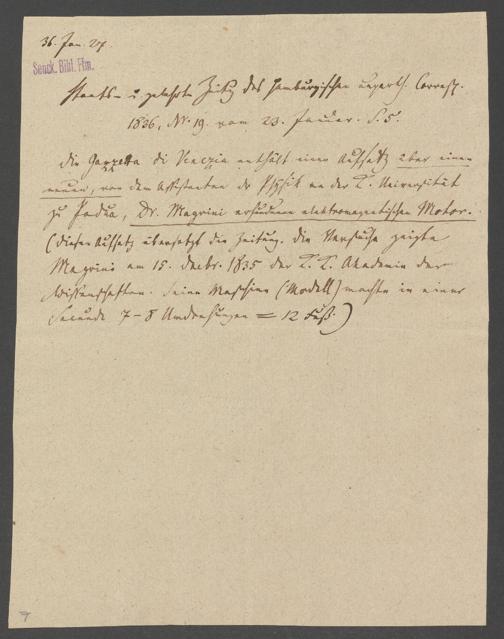 36. Jan. 27.
Senck. Bibl. Ffm.
Staats- u. gelehrte Zeitg des Hamburgischen unparth. Corresp.
1836, Nr. 19. vom 23. Januar. S. 5.
die Gazzetta di Venezia enthält einen Aufsatz über einen
neuen, von dem Assistenten der Physik an der K. Universität
zu Padua, Dr. Magrini erfundenen elektromagnetischen Motor.
(dieser Aufsatz übersetzt die Zeitung. die Versuche zeigte
Magrini am 15. Decbr. 1835 der K. K. Akademie der
Wissenschaften. Seine Maschine (Modell) machte in einer
Secunde 7-8 Umdrehungen = 12 Fuß.)